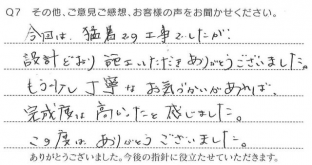 Q7 その他、ご意見ご感想、お客様の声をお聞かせください。
今回は、猛暑の中の工事でしたが、
設計どおり施工いただきありがとうございました。
もう少し丁寧なお気づかいがあれば、
完成度は高いたと感じました。
この度は、ありがとうございました。
ありがとうございました。今後の指針に役立たせていただきます。